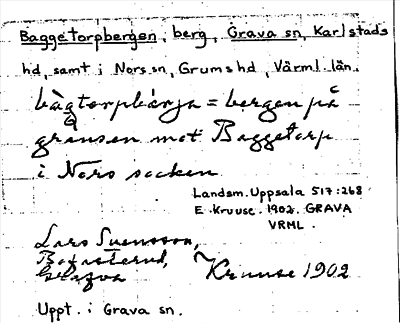 Baggetorpbergen, berg, Grava sn, Karlstads
hd, samt i Nors sn, Grums hd, Värml. län.
bàgtorpbärja = bergen på
gränsen mot Baggetorp
i Nors socken
Landsm. Uppsala 517:268
E. Kruuse. 1902. GRAVA
VRML.
Lars Svensson,
Kruuse 1902
Uppt. i Grava sn.